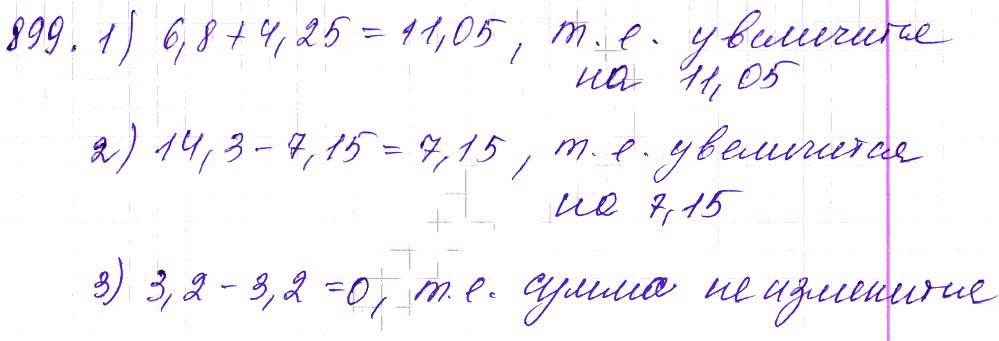 899. 1) 6,8+4,25=11,05, т.е. увеличится
на 11,05
2) 14,3-7,15=7,15, т.е. увеличится
на 7,15
3) 3,2-3,2=0, т.е. сумма не изменится